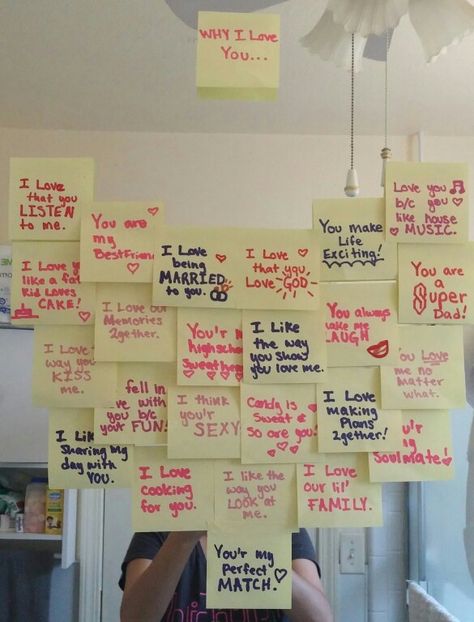 WHY I Love
You...
I Love
that you
LISTEN
to me.
You are
my
BestFriend
I Love
being
MARRIED
to you.
I Love
that you
Love GOD
You make
Life
Exciting!
Love you
b/c you
like house
MUSIC.
I Love You
like a fat
Kid Loves
CAKE!
I Love our
Memories
2gether.
You'r my
highschool
Sweetheart
I Like
the way
you show
you love me.
You
always
make me
LAUGH
You are
a Super
Dad!
I Love
way you
KISS
me.
fell in
Love with
you b/c
your FUN!
I think
you'r
SEXY
Candy is
Sweet &
so are you!
I Love
making
Plans
2gether!
You Love
me no
matter
what.
I Like
Sharing my
day with
YOU.
I Love
cooking
for you.
I like the
way you
LOOK at
me.
I Love
our lil'
FAMILY.
Soulmate!
You'r my
perfect
MATCH.